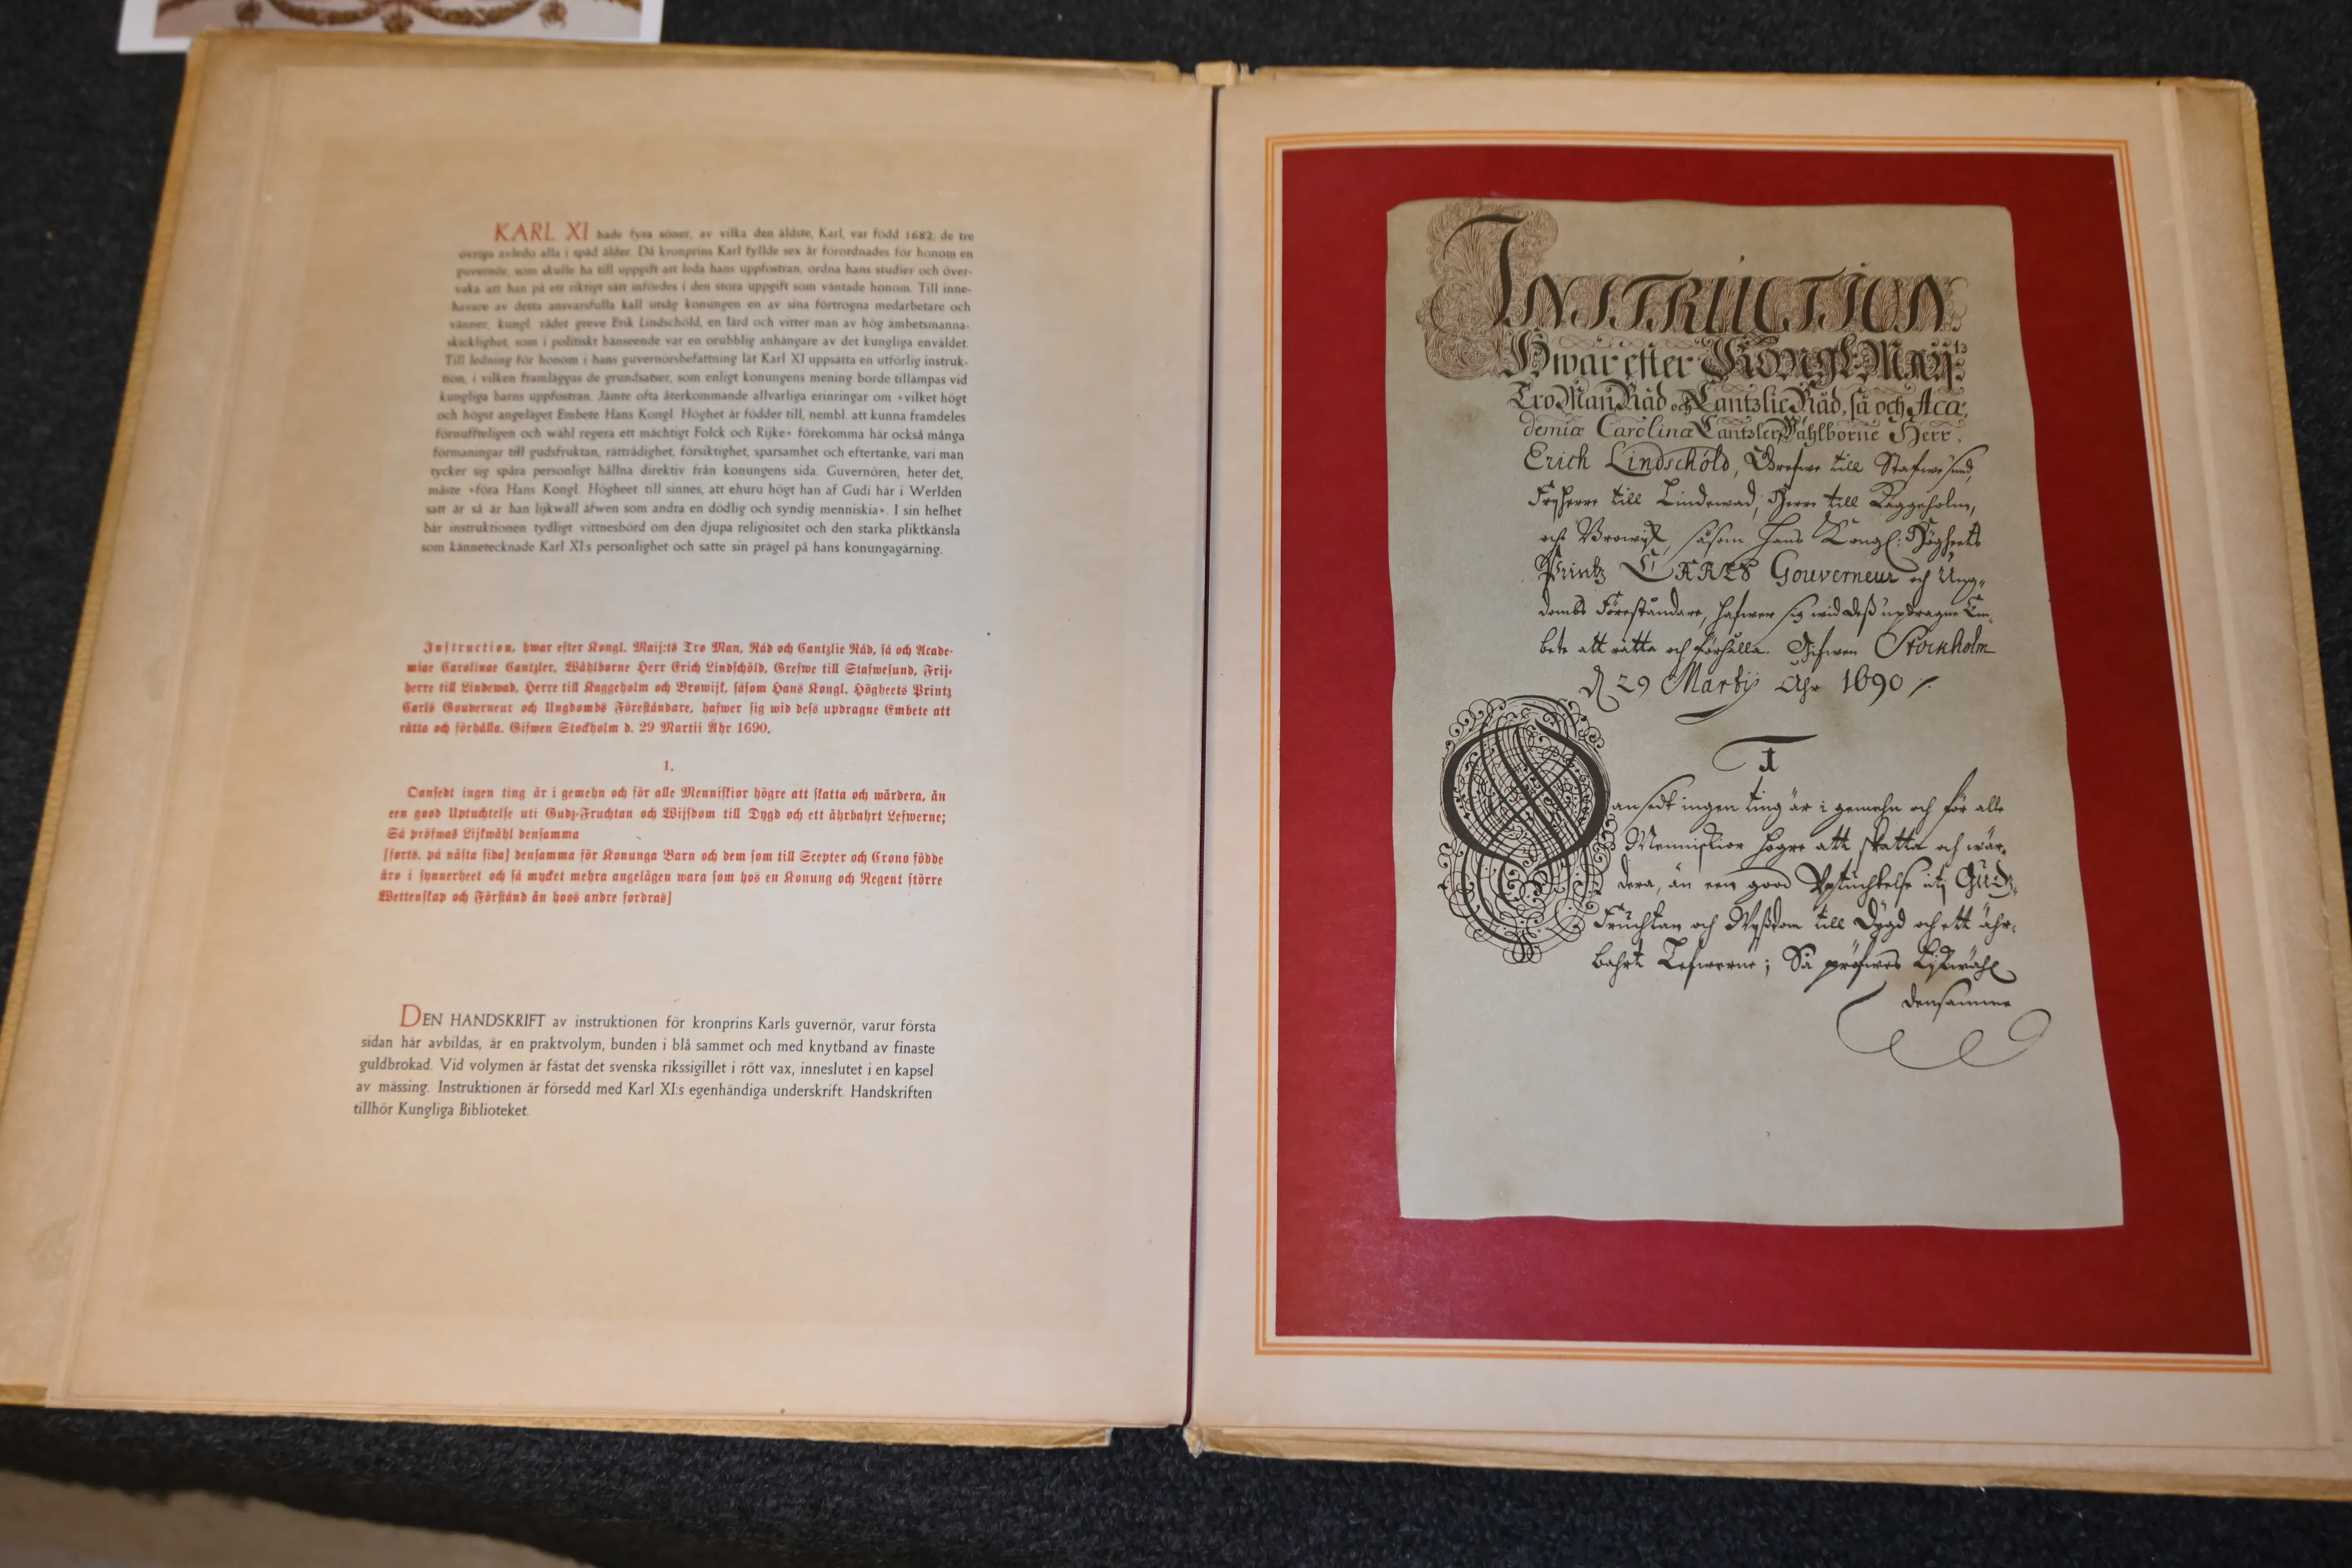 KARL XI hade fyra söner, av vilka den äldste, Karl, var född 1682; de tre
övriga avledo alla i späd ålder. Då kronprins Karl fyllde sex år förordnades för honom en
guvernör, som skulle ha till uppgift att leda hans uppfostran, ordna hans studier och över-
vaka att han på ett riktigt sätt infördes i den stora uppgift som väntade honom. Till inne-
havare av detta ansvarsfulla kall utsåg konungen en av sina förtrogna medarbetare och
vänner, kungl. rådet greve Erik Lindschöld, en lärd och vitter man av hög ämbetsmanna-
skicklighet, som i politiskt hänseende var en orubblig anhängare av det kungliga enväldet.
Till ledning för honom i hans guvernörsbefattning lät Karl XI uppsätta en utförlig instruk-
tion, i vilken framläggas de grundsatser, som enligt konungens mening borde tillämpas vid
kungliga barns uppfostran. Jämte ofta återkommande allvarliga erinringar om »vilket högt
och högst angeläget Embete Hans Kongl. Höghet är födder till, nembl. att kunna framdeles
förnuffteligen och wähl regera ett mächtigt Folck och Rijke» förekomma här också många
förmaningar till gudsfruktan, rättrådighet, försiktighet, sparsamhet och eftertanke, vari man
tycker sig spåra personligt hållna direktiv från konungens sida. Guvernören, heter det,
måste »föra Hans Kongl. Högheet till sinnes, att ehuru högt han af Gudi här i Werlden
satt är så är han lijkwäll äfwen som andra en dödlig och syndig menniskia». I sin helhet
bär instruktionen tydligt vittnesbörd om den djupa religiositet och den starka pliktkänsla
som kännetecknade Karl XI:s personlighet och satte sin prägel på hans konungagärning.
Instruction, hwar efter Kongl. Maij:tö Tro Man, Råd och Cantzlie Råd, så och Acade-
miae Carolinae Cantzler, Wählborne Herr Erich Lindschöld, Grefwe till Stafwesund, Frij-
herre till Lindewad, Herre till Kaggeholm och Browijk, såsom Hans Kongl. Högheets Printz
Carls Gouverneur och Ungdombs Föreståndare, hafwer sig wid dess updragne Embete att
rätta och förhålla. Gifwen Stockholm d. 29 Martii Åhr 1690.
1.
Oansedt ingen ting är i gemehn och för alle Menniskior högre att skatta och wärdera, än
een good Uptuchtelse uti Gudz-Fruchtan och Wijsdom till Dygd och ett ährbahrt Lefwerne;
Så pröfwas Lijkwähl densamma
[forts. på nästa sida] densamma för Konunga Barn och dem som till Scepter och Crono födde
äro i synnerheet och så mycket mehra angelägen wara som hos en Konung och Regent större
Wettenskap och Förstånd än hoos andre fordras]
DEN HANDSKRIFT av instruktionen för kronprins Karls guvernör, varur första
sidan här avbildas, är en praktvolym, bunden i blå sammet och med knytband av finaste
guldbrokad. Vid volymen är fästat det svenska rikssigillet i rött vax, inneslutet i en kapsel
av mässing. Instruktionen är försedd med Karl XI:s egenhändiga underskrift. Handskriften
tillhör Kungliga Biblioteket.
INSTRUCTION
Hwar efter Kongl: May:tz
Tro Man Råd och Cantzlie Råd, så och Aca-
demiæ Carolinæ Cantzler, Wählborne Herr
Erich Lindschöld, Grefwe till Stafwesund,
Frijherre till Lindewad, Herre till Kaggeholm,
och Browijk, såsom Hans Kongl: Högheets
Printz CARLS Gouverneur och Ung-
dombs Föreståndare, hafwer sig wid deß updragne Em-
bete att rätta och förhålla. Gifwen Stockholm
d 29 Martij Åhr 1690
1
Oansedt ingen ting är i gemehn och för alle
Menniskior högre att skatta och wär-
dera, än een good Uptuchtelse uti Gudz-
Fruchtan och Wijßdom till Dygd och ett ähr-
bahrt Lefwerne; Så pröfwas Lijkwähl
densamma